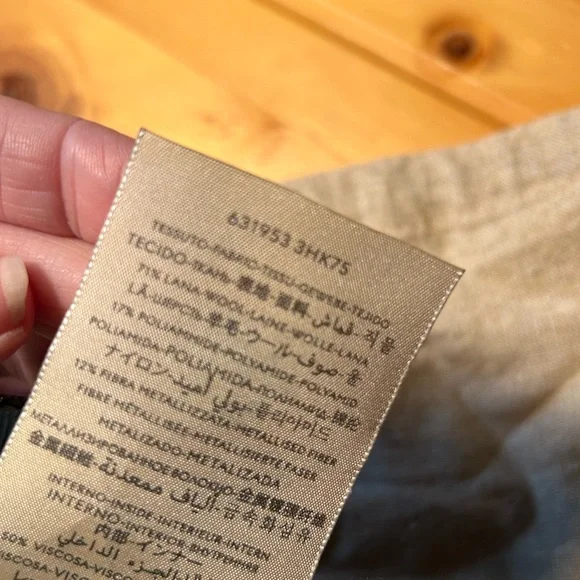 631953 3HK75
TESSUTO-FABRIC-TISSU-GEWEBE-TEJIDO
TECIDO-ТКАНЬ-表地-面料-قماش-직물
71% LANA-WOOL-LAINE-WOLLE-LANA
LÃ-ШЕРСТЬ-羊毛-ウール-صوف-울
17% POLIAMMIDE-POLYAMIDE-POLYAMID
POLIAMIDA-POLIAMIDA-ПОЛИАМИД-锦纶
ナイロン-بولي أميد-폴리아미드
12% FIBRA METALLIZZATA-METALLISED FIBER
FIBRE METALLISÉE-METALLISIERTE FASER
METALIZADO-METALIZADA
МЕТАЛЛИЗИРОВАННОЕ ВОЛОКНО-金属镀膜纤维
金属繊維-ألياف ممعدنة-금속화섬유
INTERNO-INSIDE-INTERIEUR-INTERN
INTERNO-INTERIOR-ВНУТРЕННИЙ
内部-インナー
الجزء الداخلي
50% VISCOSA-VISCOSE-VISCOSE
VISCOSA-VISCOSE